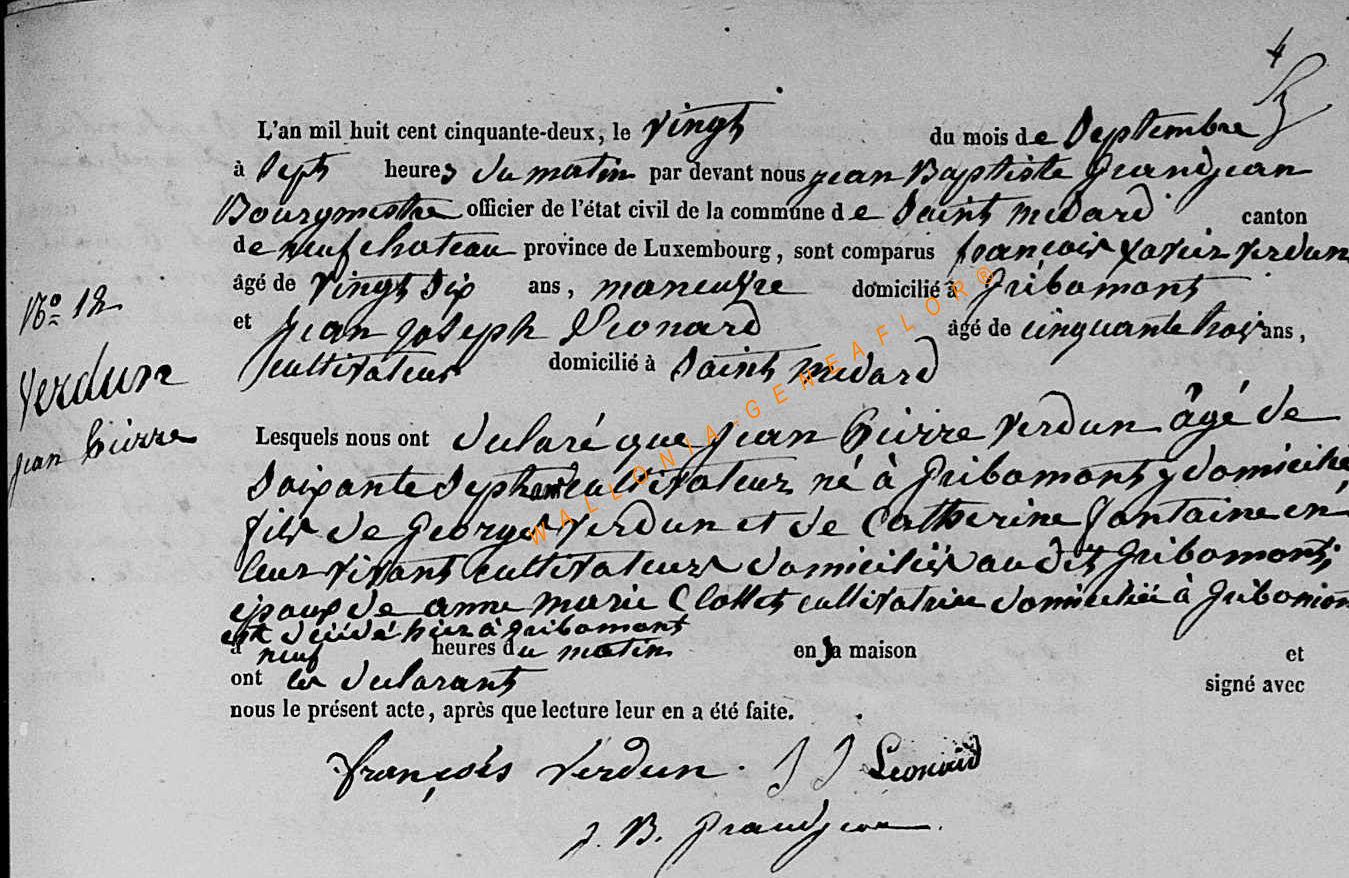 4
L'an mil huit cent cinquante-deux, le vingt du mois de Septembre
à Sept heures du matin par devant nous jean Baptiste Grandjean
Bourgmestre officier de l'état civil de la commune de Saint medard canton
de neufchateau province de Luxembourg, sont comparus françois Xavier Verdun
âgé de vingt Six ans, maneuvre domicilié à Gribomont
et jean joseph Léonard âgé de cinquante trois ans,
cultivateur domicilié à Saint medard
No 12
Verdun
jean Pierre
Lesquels nous ont déclaré que jean Pierre Verdun âgé de
Soixante Sept ans cultivateur né à Gribomont y domicilié
fils de Georges Verdun et de Catherine fontaine en
leur vivant cultivateurs domiciliés au dit Gribomont,
époux de anne marie Clottet cultivatrice domiciliée à Gribomon
est décédé hier à Gribomont
à neuf heures du matin en sa maison et
ont les déclarants signé avec
nous le présent acte, après que lecture leur en a été faite.
françois Verdun. J J Leonard
J. B. Grandjean.
WALLONIA-GENEAFLOR®